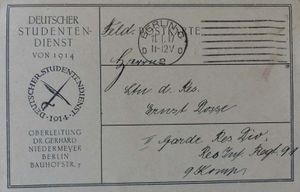 DEUTSCHER
STUDENTEN-
DIENST
VON 1914
DEUTSCHER STUDENTENDIENST
1914
OBERLEITUNG
DR. GERHARD
NIEDERMEYER
BERLIN
BAUHOFSTR. 7
Feld. POSTKARTE
BERLIN
11-12V
Ltn d. Res.
Ernst Posse
II Garde Res Div
Res Inf Regt. 91
9 Komp